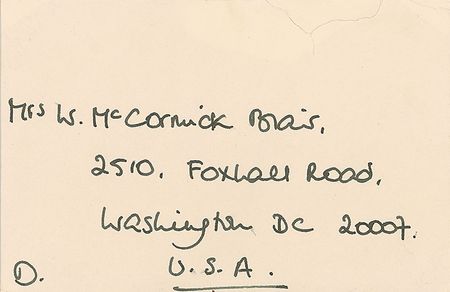 Mrs W. McCormick Blair,
2510. Foxhall Road,
Washington DC 20007.
U.S.A.
D.